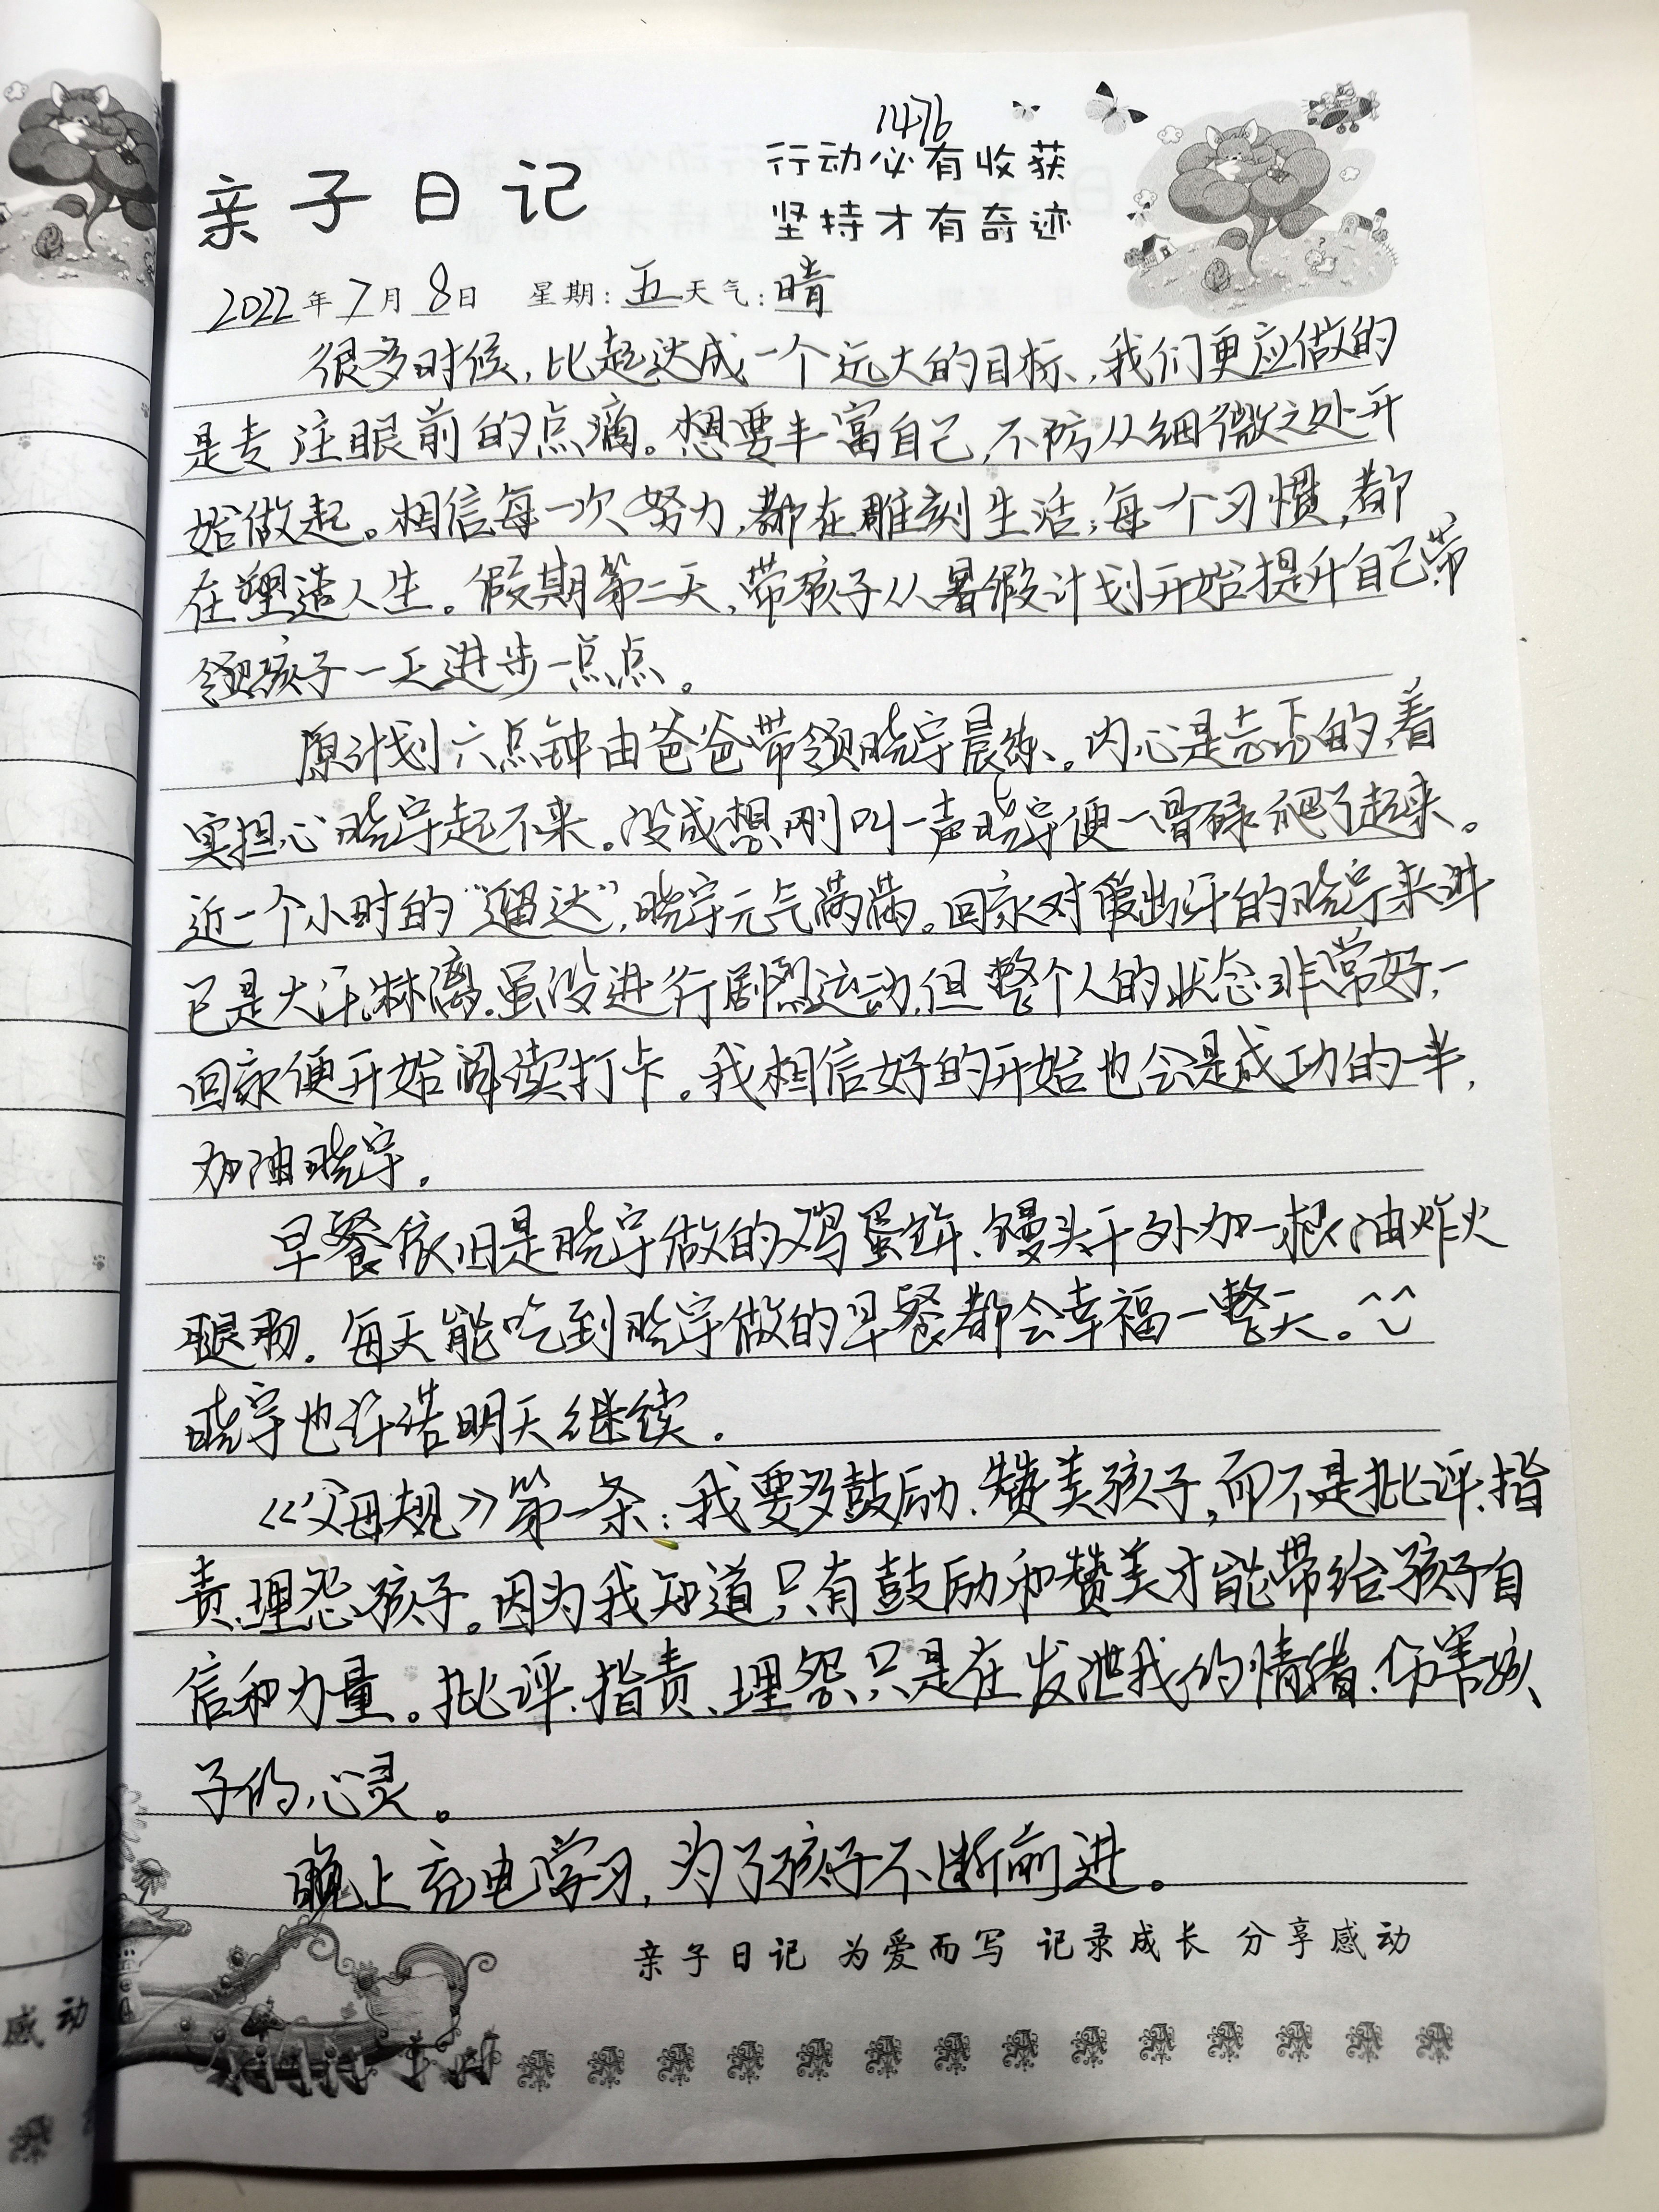 1476
行动必有收获
亲子日记
坚持才有奇迹
2022年7月8日 星期:五天气:晴
很多时候,比起达成一个远大的目标,我们更应做的
是专注眼前的点滴。想要丰富自己,不防从细微之处开
始做起。相信每一次努力,都在雕刻生活;每一个习惯,都
在塑造人生。假期第二天,带孩子从暑假计划开始提升自己带
领孩子一天进步一点点。
原计划六点钟由爸爸带领晓宇晨练。内心是忐忑的,着
实担心晓宇起不来。没成想刚叫一声晓宇便一骨碌爬了起来。
近一个小时的“遛达”,晓宇元气满满。回家对爱出汗的晓宇来讲
已是大汗淋漓。虽没进行剧烈运动,但整个人的状态非常好,一
回家便开始阅读打卡。我相信好的开始也会是成功的一半,
加油晓宇。
早餐依旧是晓宇做的鸡蛋饼、馒头干外加一根油炸火
腿肠。每天能吃到晓宇做的早餐都会幸福一整天。^^
晓宇也许诺明天继续。
《父母规》第一条:我要多鼓励、赞美孩子,而不是批评、指
责、埋怨孩子。因为我知道,只有鼓励和赞美才能带给孩子自
信和力量。批评、指责、埋怨只是在发泄我的情绪、伤害孩
子的心灵。
晚上充电学习,为了孩子不断前进。
亲子日记 为爱而写 记录成长 分享感动
感动